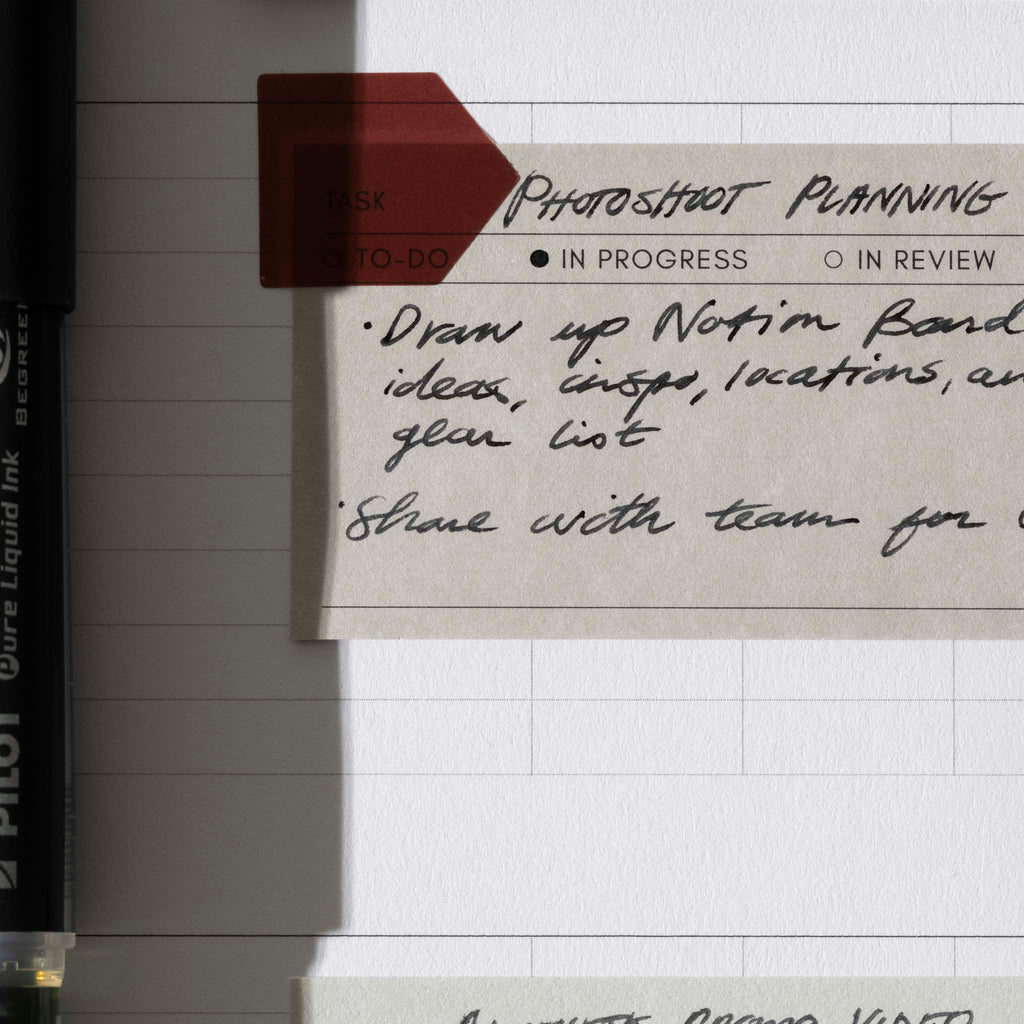 TASK PHOTOSHOOT PLANNING
TO-DO IN PROGRESS IN REVIEW
• Draw up Notion Board
ideas, inspo, locations, an
gear list
• Share with team for
PROMO VIDEO
BEGREEN
Pure Liquid Ink
PILOT